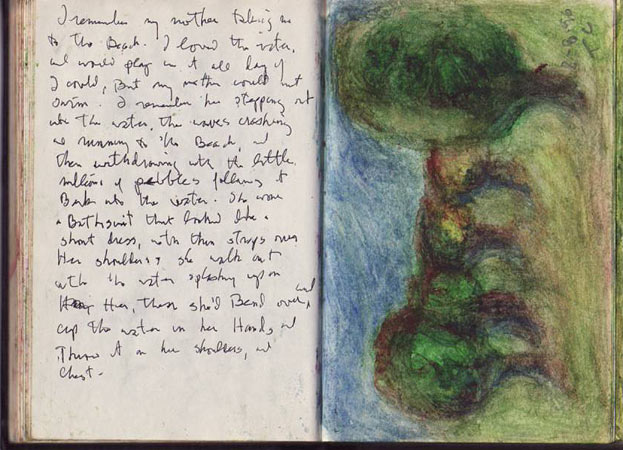 I remember my mother taking me
to the Beach. I loved the water,
and would play in it all day if
I could, But my mother could not
swim. I remember her stepping out
into the water, the waves crashing
and running to the Beach, and
then withdrawing with the little
millions of pebbles following it
Back into the water. She wore
a Bathsuit that looked like a
short dress, with thin straps over
Her shoulders, she walk out
with the water splashing up on
Her, then she'd Bend over, and
cup the water in her Hands, and
Throw it on her shoulders, and
chest.